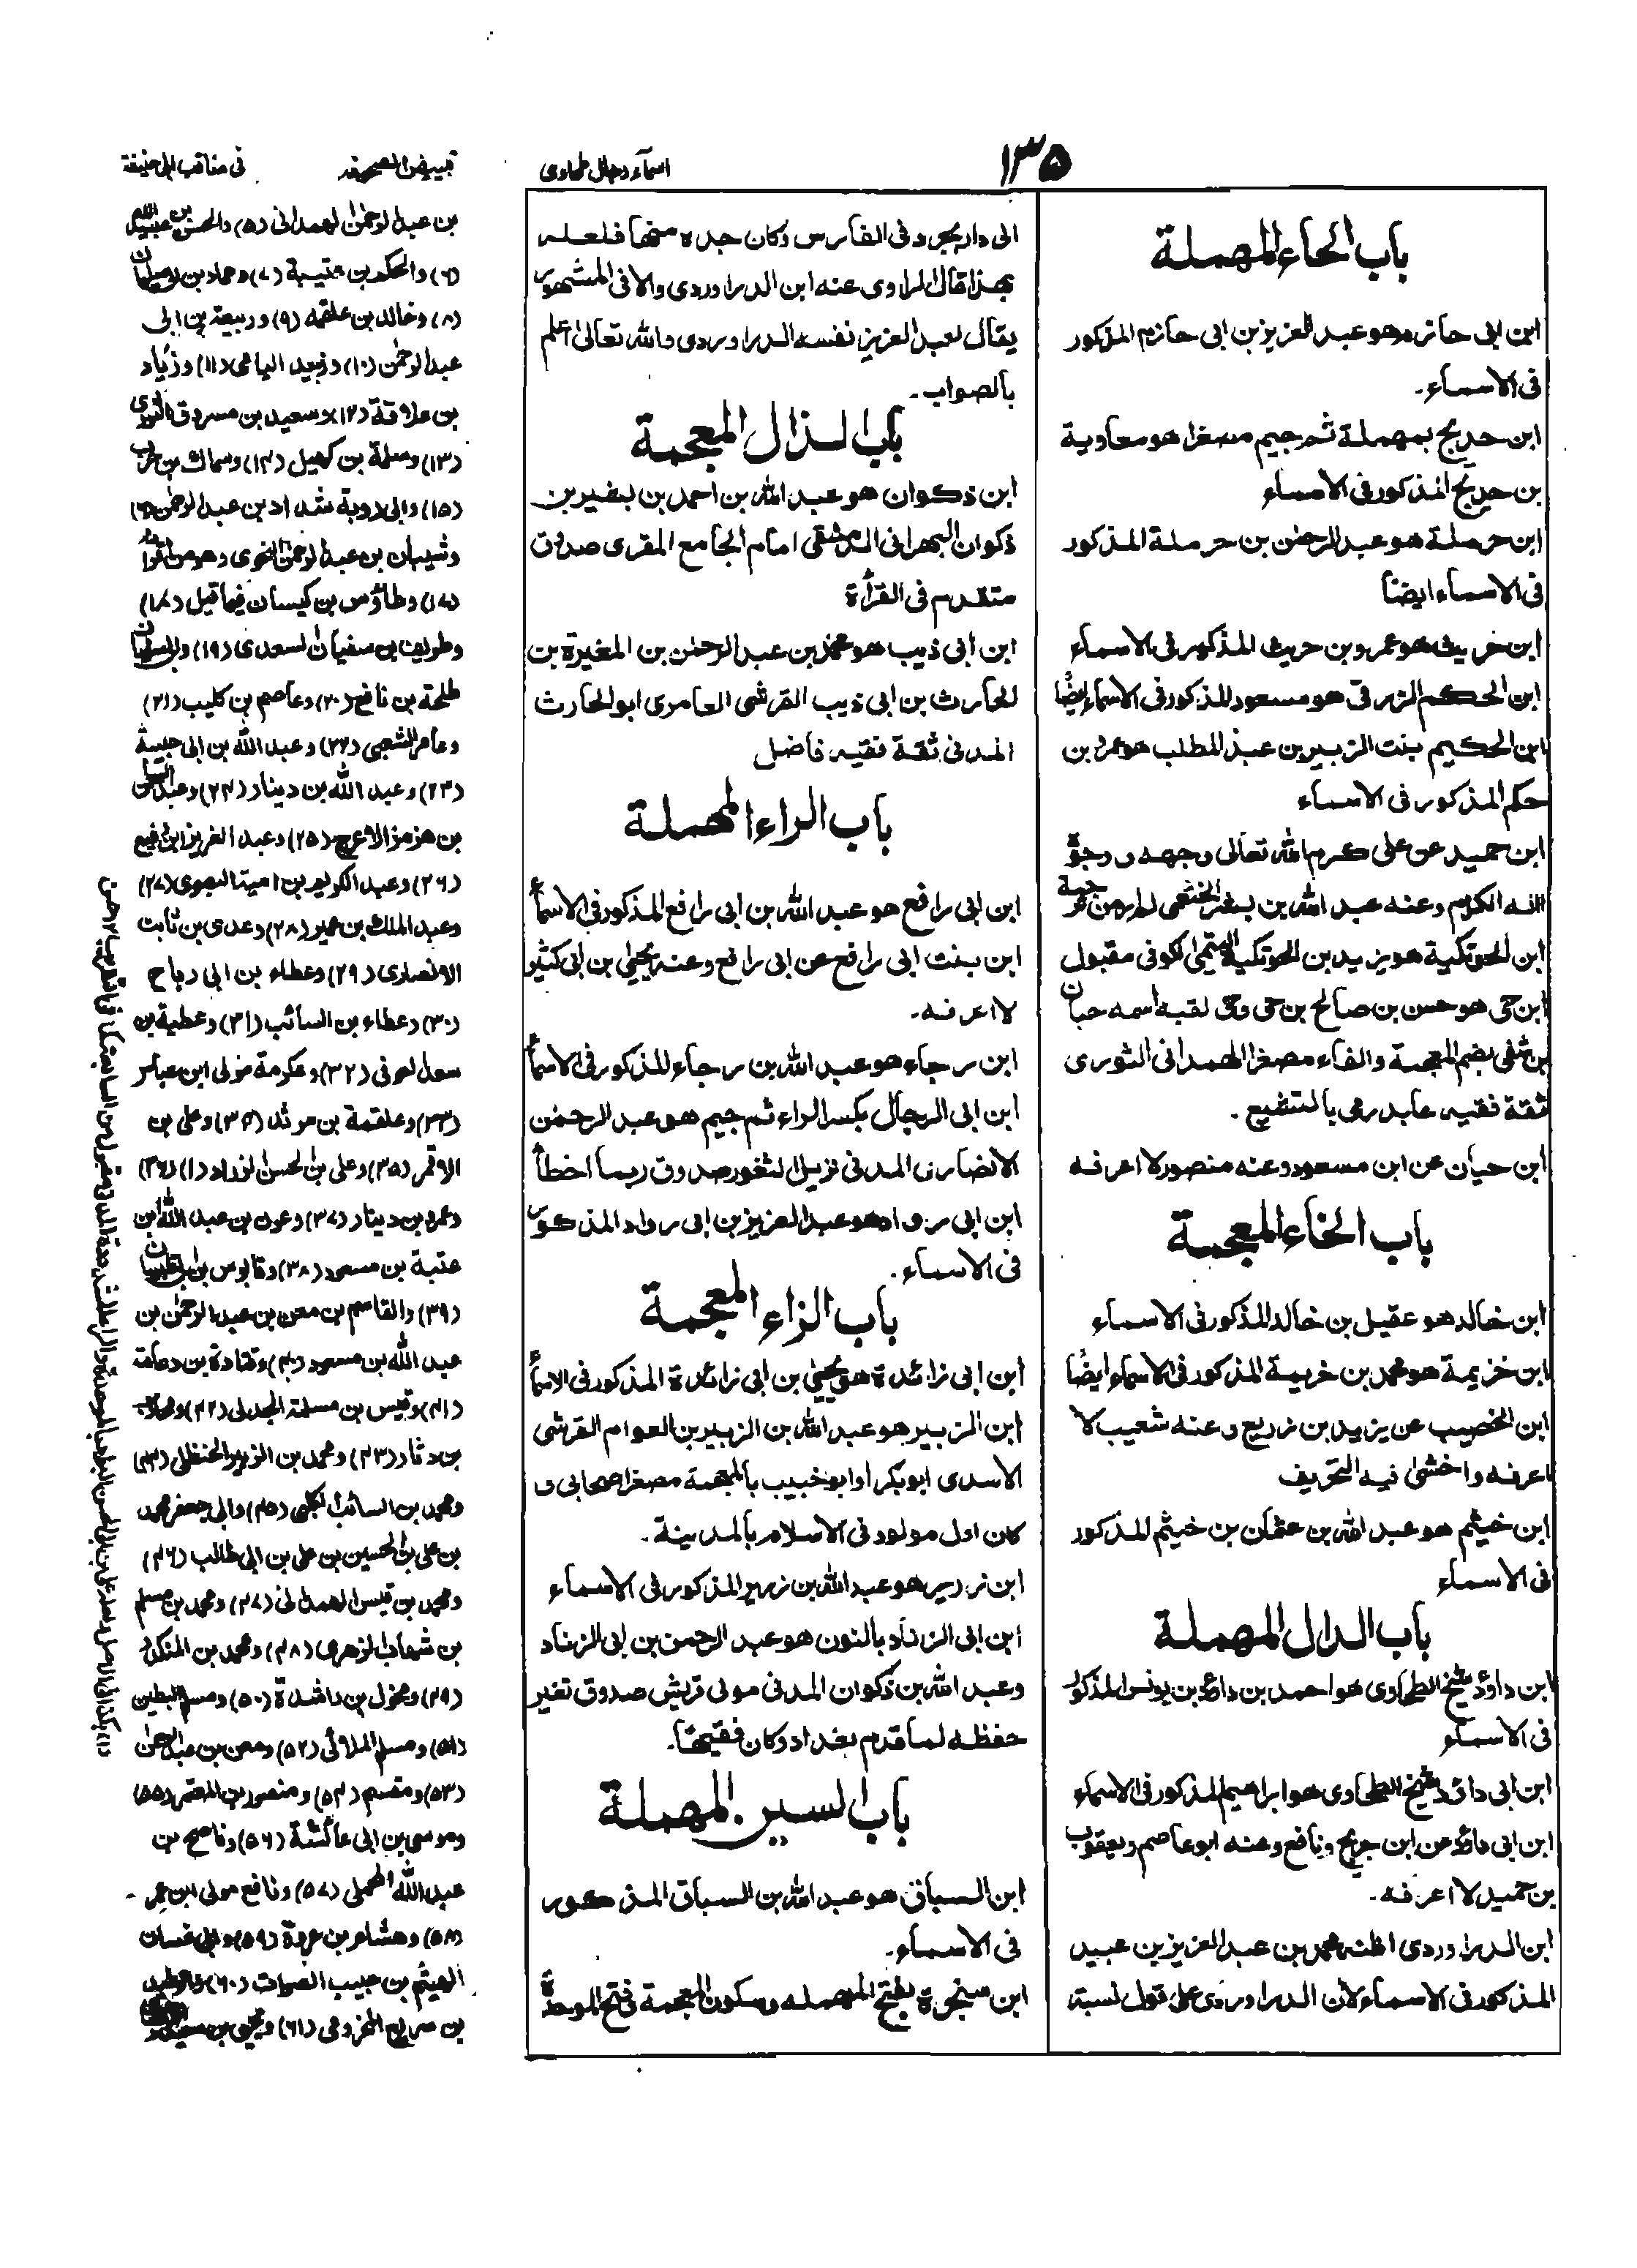 ١٣٥
اسماء رجال طحاوى
تبييض الصحيفه
فى مناقب ابى حنيفة
باب الحاء المهملة
ابن ابى حازم هو عبد العزيز بن ابى حازم المذكور
فى الاسماء۔
ابن حديج بمهملة ثم جيم مصغرا هو معاوية
بن حديج المذكور فى الاسماء
ابن حرملة هو عبد الرحمٰن بن حرملة المذكور
فى الاسماء ايضًا
ابن حريث هو عمرو بن حريث المذكور فى الاسماء
ابن الحكم الزرقى هو مسعود المذكور فى الاسماء ايضًا
ابن الحكيم بنت الزبير بن عبد المطلب هو عمرو بن
حكم المذكور فى الاسماء
ابن حميد عن على كرم الله تعالى وجهه ووجوه
اٰله الكرام وعنه عبد الله بن بشر الخثعمى لم ار من
ابن الحوتكية هو يزيد بن الحوتكية التميمى الكوفى مقبول
ابن حى هو حسن بن صالح بن حى وحى لقبه اسمه حبان
بن شفى بضم المعجمة والفاء مصغرا الهمدانى الثورى
ثقة فقيه عابد رمى بالتشيع۔
ابن حيان عن ابن مسعود وعنه منصور لا اعرفه
باب الخاء المعجمة
ابن خالد هو عقيل بن خالد المذكور فى الاسماء
ابن خزيمة هو محمد بن خزيمة المذكور فى الاسماء ايضًا
ابن الخصيب عن يزيد بن زريع وعنه شعيب لا
اعرفه واخشىٰ فيه التحريف
ابن خيثم هو عبد الله بن عثمان بن خيثم المذكور
فى الاسماء
باب الدال المهملة
ابن داؤد شيخ الطحاوى هو احمد بن داؤد بن يونس المذكور
فى الاسماء
ابن ابى داؤد شيخ الطحاوى هو ابراهيم المذكور فى الاسماء
ابن ابى داؤد عن ابن جريج ونافع وعنه ابو عاصم ويعقوب
بن حميد لا اعرفه۔
ابن الدراوردى اظنه محمد بن عبد العزيز بن عبيد
المذكور فى الاسماء لأن الدراوردى على قول نسبة
الى دارابجرد فى الفارس وكان جده منها فلعله
بهذا قال الراوى عنه ابن الدراوردى والا فى المشهور
يقال لعبد العزيز نفسه الدراوردى والله تعالىٰ اعلم
بالصواب۔
باب الذال المعجمة
ابن ذكوان هو عبد الله بن احمد بن بشير بن
ذكوان البهرانى الدمشقى امام الجامع المقرى صدوق
متقدم فى القرأة
ابن ابى ذيب هو محمد بن عبد الرحمٰن بن المغيرة بن
الحارث بن ابى ذيب القرشى العامرى ابو الحارث
المدنى ثقة فقيه فاضل
باب الراء المهملة
ابن ابى رافع هو عبد الله بن ابى رافع المذكور فى الاسماء
ابن بنت ابى رافع عن ابى رافع وعنه يحيىٰ بن ابى كثير
لا اعرفه۔
ابن رجاء هو عبد الله بن رجاء المذكور فى الاسماء
ابن ابى الرجال بكسر الراء ثم جيم هو عبد الرحمٰن
الانصارى المدنى نزيل الثغور صدوق ربما اخطأ
ابن ابى رواد هو عبد العزيز بن ابى رواد المذكور
فى الاسماء۔
باب الزاء المعجمة
ابن ابى زائدة هو يحيىٰ بن ابى زائدة المذكور فى الاسماء
ابن الزبير هو عبد الله بن الزبير بن العوام القرشى
الاسدى ابوبكر او ابو خبيب بالمعجمة مصغرا صحابى و
كان اول مولود فى الاسلام بالمدينة۔
ابن زرير هو عبد الله بن زرير المذكور فى الاسماء
ابن ابى الزناد بالنون هو عبد الرحمن بن ابى الزناد
وعبد الله بن ذكوان المدنى مولى قريش صدوق تغير
حفظه لما قدم بغداد وكان فقيهًا۔
باب السين المهملة
ابن السباق هو عبد الله بن السباق المذكور
فى الاسماء۔
ابن سنجرة بفتح المهملة وسكون المعجمة فتح الموحدة
بن عبد الرحمٰن الهمدانى (٥) والحسن بن عبيد الله
(٦) والحكم بن عتيبة (٧) وحماد بن ابى سليمان
(٨) وخالد بن علقمه (٩) وربيعة بن ابى
عبد الرحمٰن (١٠) وزبيد اليامى (١١) وزياد
بن علاقة (١٢) وسعيد بن مسروق الثورى
(١٣) وسلمة بن كهيل (١٤) وسماك بن حرب
(١٥) وابى روبة شداد بن عبد الرحمٰن (١٦)
وشيبان بن عبد الرحمٰن النحوى وهو من اقرانه
(١٧) وطاؤس بن كيسان فيما قيل (١٨)
وطريف بن سفيان السعدى (١٩) وابى سفيان
طلحة بن نافع (٢٠) وعاصم بن كليب (٢١)
وعامر الشعبى (٢٢) وعبد الله بن ابى حبيبة
(٢٣) وعبد الله بن دينار (٢٤) وعبد الرحمٰن
بن هرمز الاعرج (٢٥) وعبد العزيز ابن رفيع
(٢٦) وعبد الكريم بن امية البصرى (٢٧)
وعبد الملك بن عمير (٢٨) وعدى بن ثابت
الانصارى (٢٩) وعطاء بن ابى رباح
(٣٠) وعطاء بن السائب (٣١) وعطية بن
سعد العوفى (٣٢) وعكرمة مولى ابن عباس
(٣٣) وعلقمة بن مرثد (٣٤) وعلى بن
الاقمر (٣٥) وعلى بن الحسن الزراد (١) (٣٦)
وعمرو بن دينار (٣٧) وعون بن عبد الله ابن
عتبة بن مسعود (٣٨) وقابوس بن ابى ظبيان
(٣٩) والقاسم بن معن بن عبد الرحمٰن بن
عبد الله بن مسعود (٤٠) وقتادة بن دعامة
(٤١) وقيس بن مسلمة الجدلى (٤٢) ومحارب
بن دثار (٤٣) ومحمد بن الزبير الحنظلى (٤٤)
ومحمد بن السائب الكلبى (٤٥) وابى جعفر محمد
بن على بن الحسين بن على بن ابى طالب (٤٦)
ومحمد بن قيس الهمدانى (٤٧) ومحمد بن مسلم
بن شهاب الزهرى (٤٨) ومحمد بن المنكدر
(٤٩) ومخول بن راشدة (٥٠) ومسلم البطين
(٥١) ومسلم الملائى (٥٢) ومعن بن عبد الرحمٰن
(٥٣) ومقسم (٥٤) ومنصور بن المعتمر (٥٥)
وموسى بن ابى عائشة (٥٦) وناصح بن
عبد الله المحملى (٥٧) ونافع مولى ابن عمر۔
(٥٨) وهشام بن عروة (٥٩) وابى غسان
الهيثم بن حبيب الصراف (٦٠) والوليد
بن سريع المخزومى (٦١) ويحيى بن سعيد
(١) كذا فى الاصل ولعله على بن